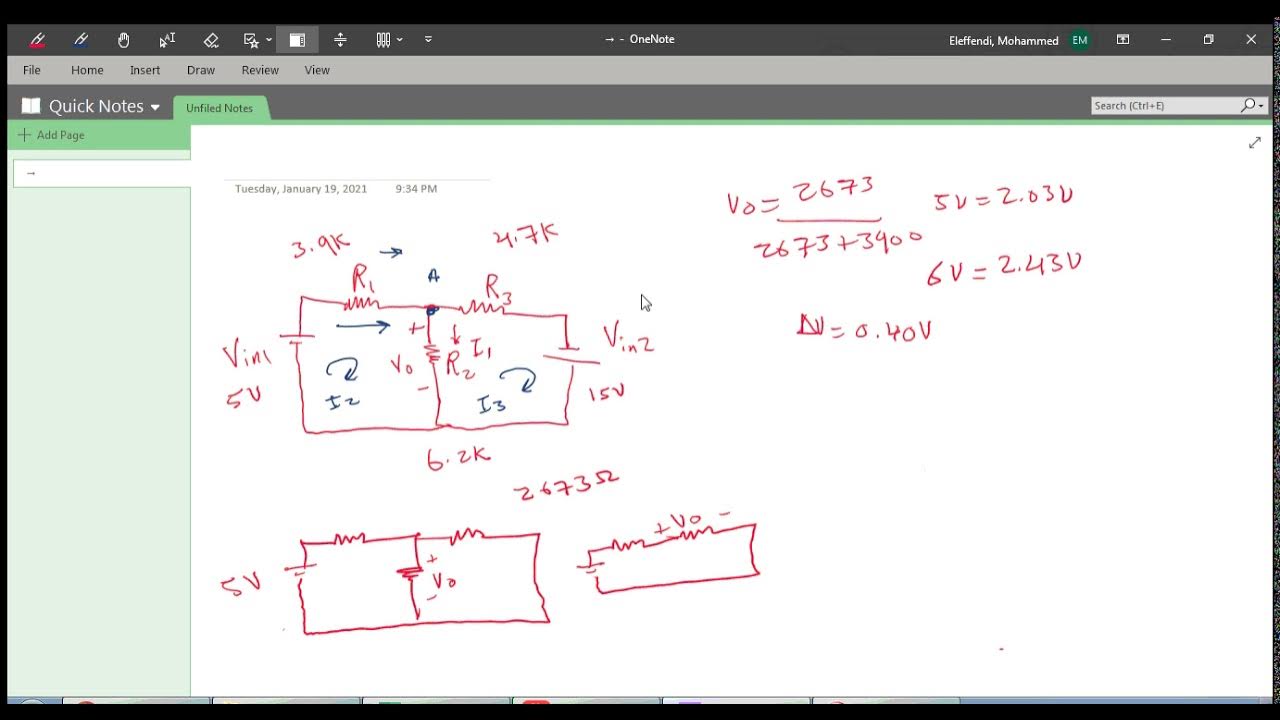 → - OneNote
Eleffendi, Mohammed EM
File Home Insert Draw Review View
Quick Notes Unfiled Notes
Search (Ctrl+E)
Add Page
→
Tuesday, January 19, 2021 9:34 PM
3.9K → 4.7K
R1 A R3
Vin1 5V
+ Vo -
R2 I1
I2 I3
Vin2 15V
6.2K
2673Ω
Vo = 2673 / 2673+3900 5V = 2.03V
6V = 2.43V
ΔV = 0.40V
5V + Vo -
+ Vo -